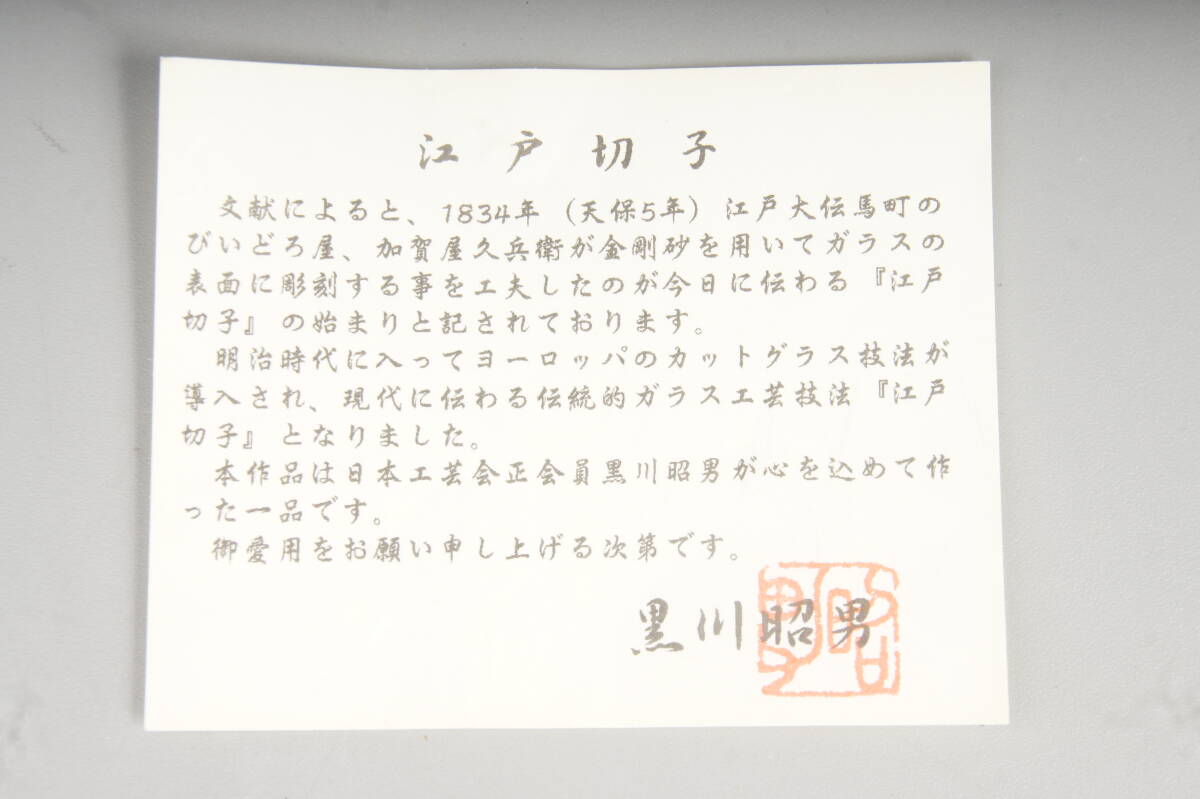 江戸切子
文献によると、1834年（天保5年）江戸大伝馬町の
びいどろ屋、加賀屋久兵衛が金剛砂を用いてガラスの
表面に彫刻する事を工夫したのが今日に伝わる『江戸
切子』の始まりと記されております。
明治時代に入ってヨーロッパのカットグラス技法が
導入され、現代に伝わる伝統的ガラス工芸技法『江戸
切子』となりました。
本作品は日本工芸会正会員黒川昭男が心を込めて作
った一品です。
御愛用をお願い申し上げる次第です。
黒川昭男
昭男